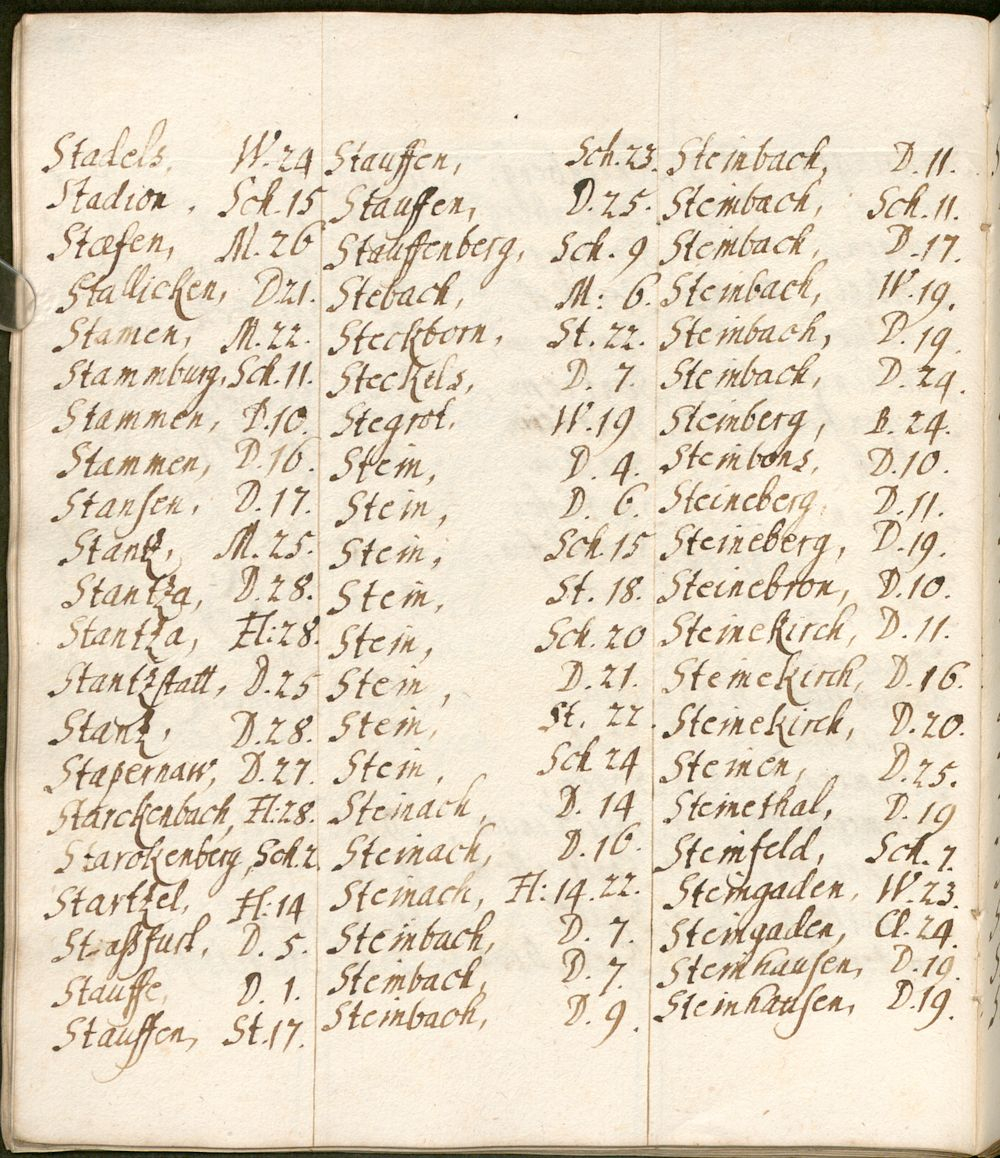 Stadels, W.24
Stadion, Sch.15
Stæfen, M.26
Stallicken, D21.
Stamen, M.22.
Stammburg, Sch.11.
Stammen, D.10.
Stammen, D.16.
Stansen, D.17.
Stantz, M.25.
Stantza, D.28.
Stantza, Fl:28.
Stantzstatt, D.25
Stantz, D.28.
Stapernaw, D.27.
Starckenbach, Fl:28.
Starckenberg, Sch.2.
Startzel, Fl:14
Staßfurt, D.5.
Stauffe, D.1.
Stauffen, St.17.
Stauffen, Sch.23.
Stauffen, D.25.
Stauffenberg, Sch.9
Stebach, M:6.
Steckborn, St.22.
Steckels, D.7.
Stegrot, W.19
Stein, D.4.
Stein, D.6.
Stein, Sch.15
Stein, St.18.
Stein, Sch.20
Stein, D.21.
Stein, St.22.
Stein, Sch 24
Steinach, D.14
Steinach, D.16.
Steinach, Fl:14.22.
Steinbach, D.7.
Steinbach, D.7.
Steinbach, D.9.
Steinbach, D.11.
Steinbach, Sch.11.
Steinbach, D.17.
Steinbach, W.19.
Steinbach, D.19.
Steinbach, D.24.
Steinberg, B.24.
Steinbons, D.10.
Steineberg, D.11.
Steineberg, D.19.
Steinebron, D.10.
Steinekirch, D.11.
Steinekirch, D.16.
Steinekirch, D.20.
Steinen, D.25.
Steinethal, D.19
Steinfeld, Sch.7.
Steingaden, W.23.
Steingaden, Cl.24.
Steinhausen, D.19.
Steinhausen, D.19.